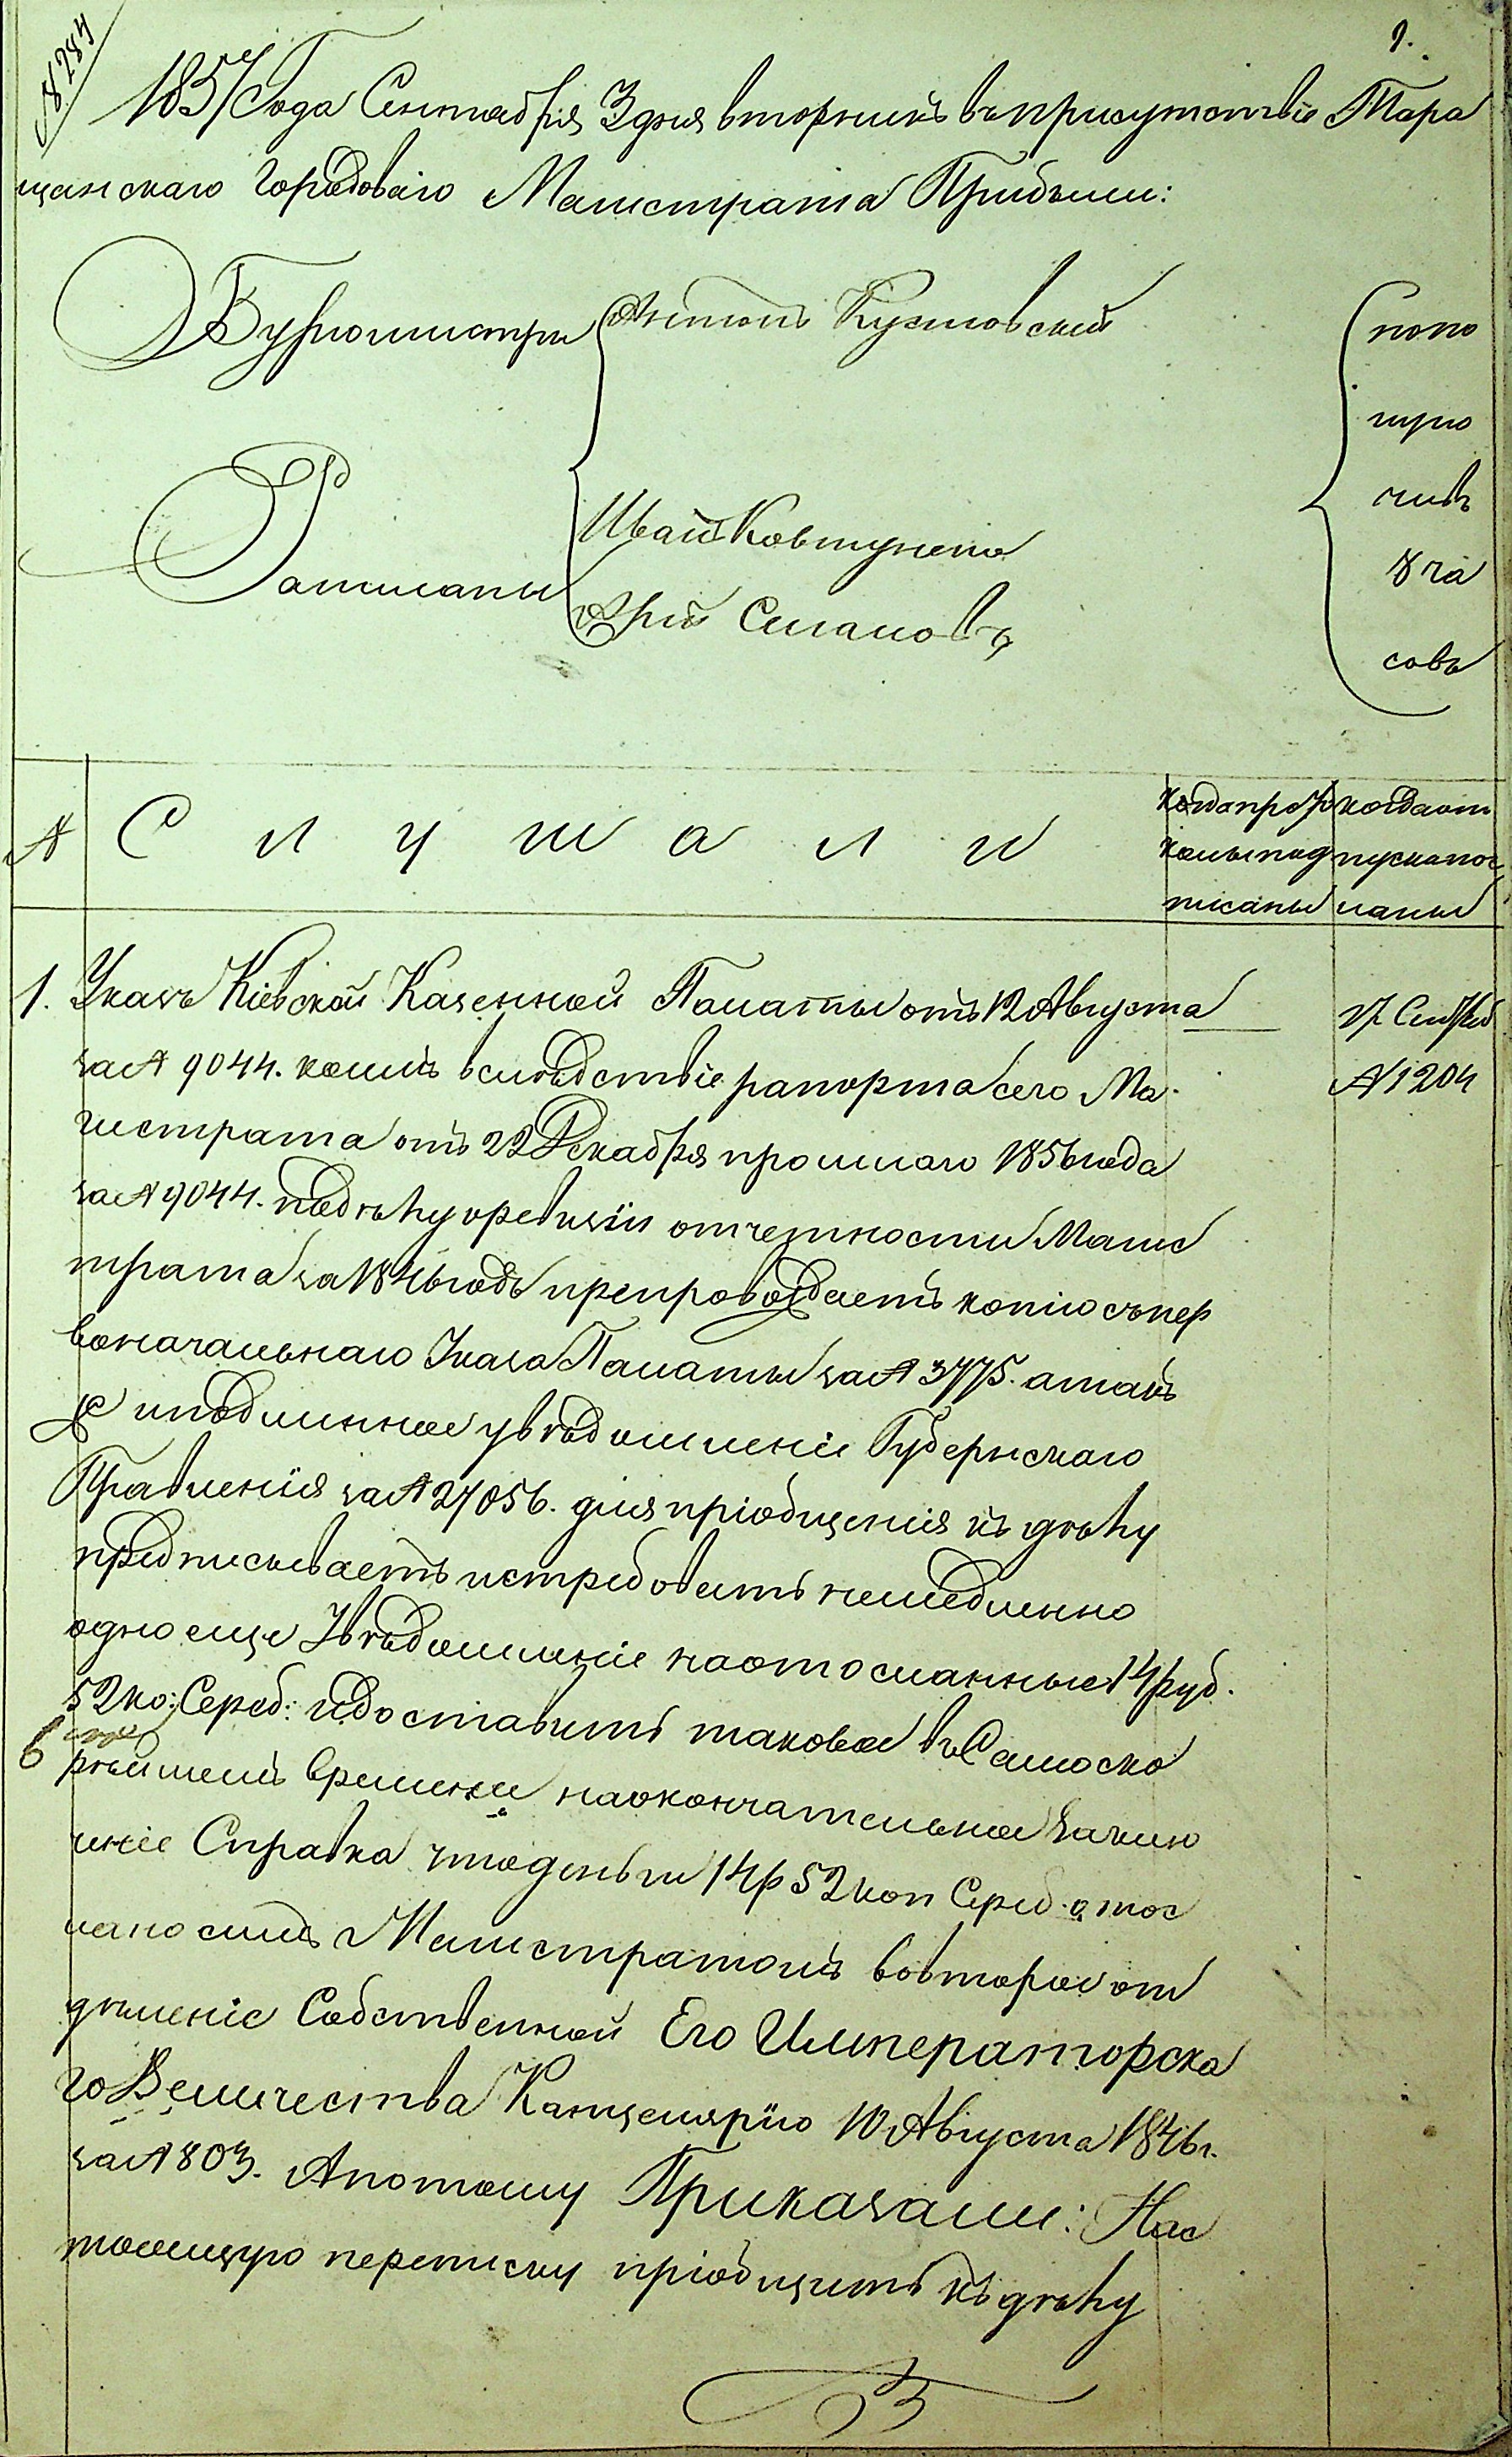 № 284
1.
1857 Года Сентября 3 дня вторникъ въ присутствіе Тара
щанскаго Городоваго Магистрата Прибыли:
Бургомистры
Ратманы
Иванъ Ковтуненко
попо
лупо
чивъ
8 ча
совъ
№
С л у ш а л и
когда прото
колы под
писаны
когда от
пуск пос
ланы
1. Указъ Кіевской Казенной Палаты отъ 12 Августа
за № 9044. коимъ вслѣдствіе рапорта сего Ма
гистрата отъ 22 Декабря прошлаго 1856 года
за № 9044. по дѣлу о ревизіи отчетности Магис
трата за 1846 годъ препровождаетъ копію съ пер
воначальнаго Указа Палаты за № 3775. а такъ
же и подлинное увѣдомленіе Губернскаго
Правленія за № 27056. для пріобщенія къ дѣлу
предписываетъ истребовать немедленно
одно еще Увѣдомленіе на отосланные 14 руб.
52 ко: Сереб: и доставить таковое въ Самоско
рѣйшемъ времени на окончательное заклю
ченіе Справка что деньги 14 р 52 коп Сереб. отос
лано симъ Магистратомъ во второе от
дѣленіе Собственной Его Императорска
го Величества Канцелярію 10 Августа 1846 г.
за № 803. А потому Приказали: Нас
тоящую переписку пріобщить къ дѣлу
№ 1204